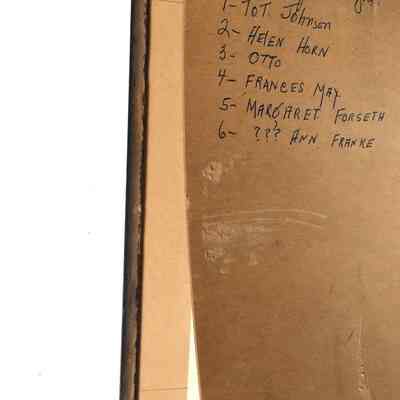 1- TOT. Johnson
2- HELEN HORN
3- OTTO
4- FRANCES MAY
5- MARGARET FORSETH
6- ??? ANN FRANKE